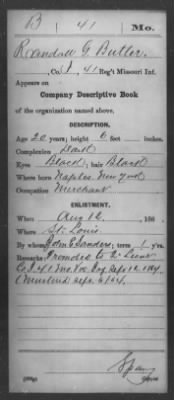 B 41 Mo.
G. Butler.
, Co. I, 41 Reg't Missouri Inf.
Appears on
Company Descriptive Book
of the organization named above.
DESCRIPTION.
Age 20 years; height 6 feet inches.
Complexion Dark
Eyes Black; hair Black
Where born Naples New york
Occupation Merchant
ENLISTMENT.
When Aug 12, 186 .
Where St. Louis
By whom John E Sanders; term 1 y'rs.
Remarks: Promoted to 2" Lieut
Co I 41 Mo Vol Sept 12 1864
(Mustered Sept. 6/64)